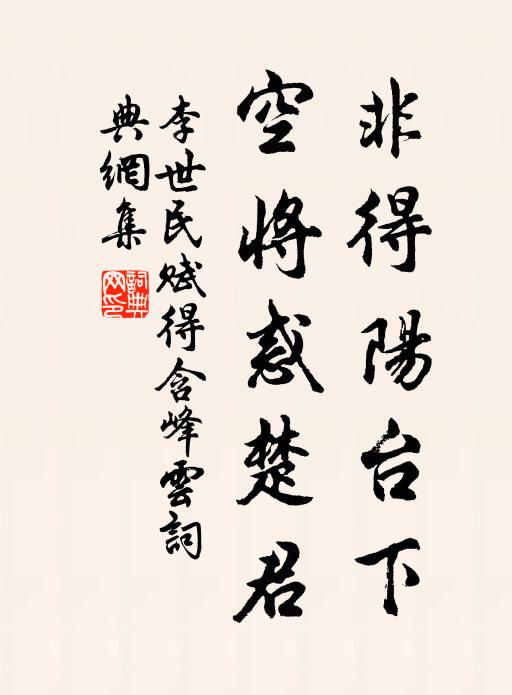 非得陽台下
空將惑楚君
李世民賦得含峰雲詞
典網集
詞典
网印